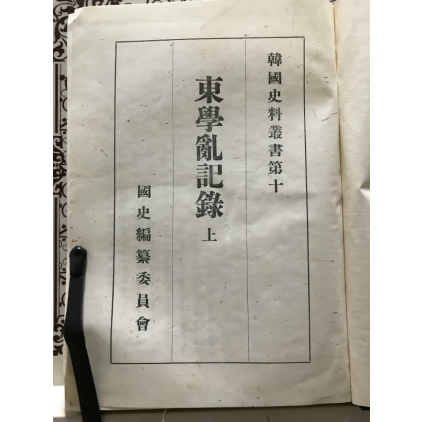 韓國史料叢書第十
東學亂記錄 上
國史編纂委員會